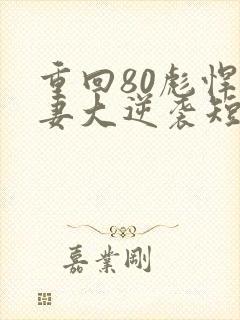 重回80彪悍
妻大逆袭短
嘉业刚